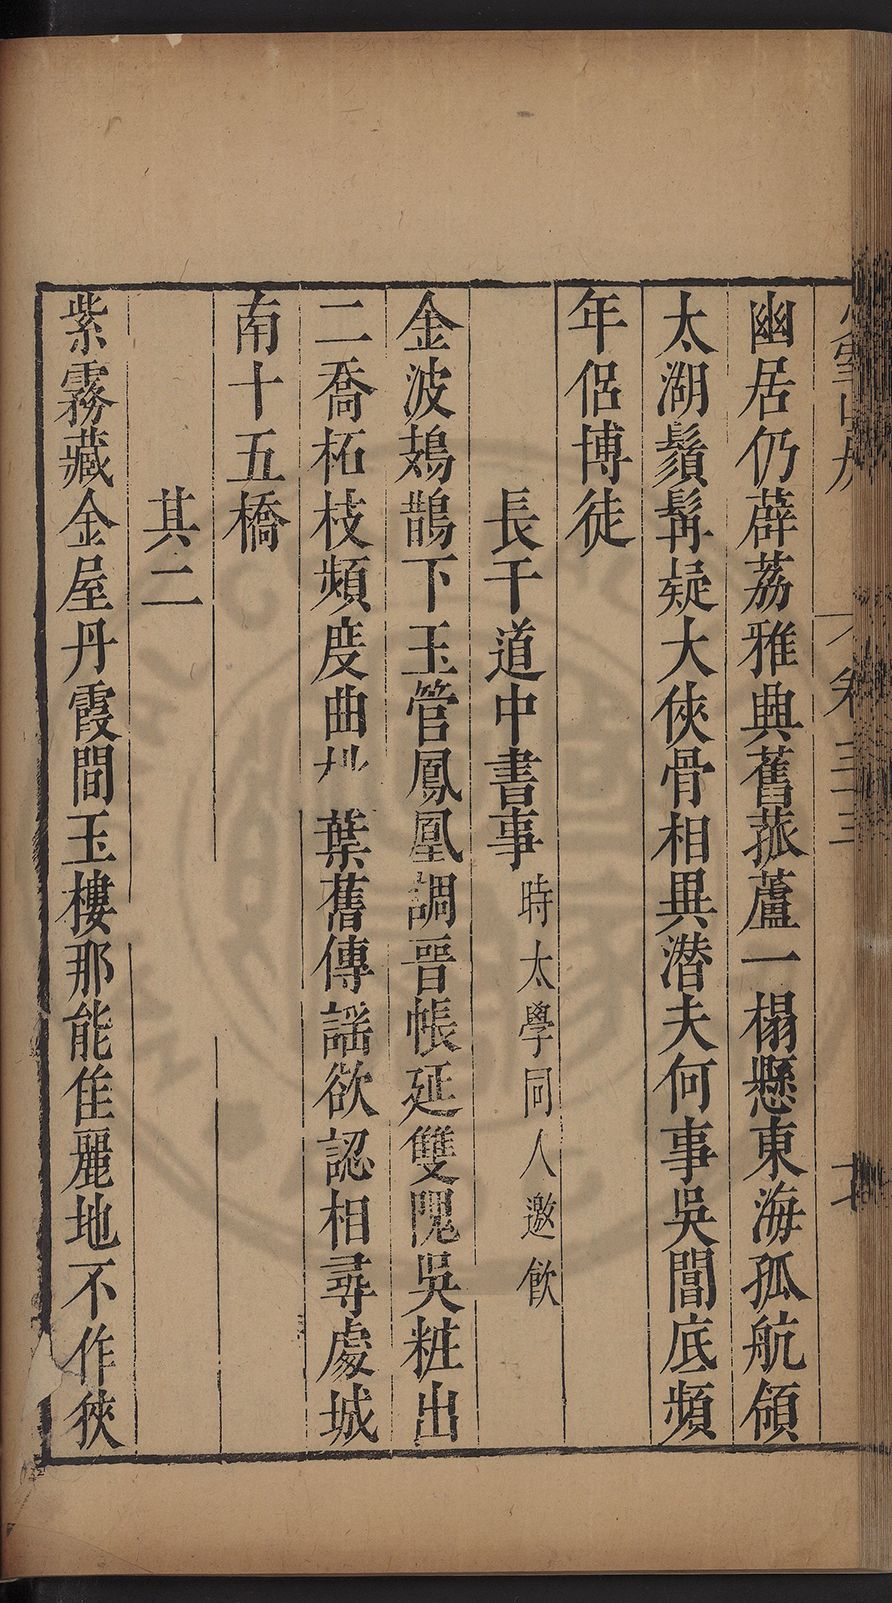 幽居仍薜荔雅典舊菰蘆一榻懸東海孤航領
太湖鬚髯疑大俠骨相異潛夫何事吳閶底頻
年侶博徒
長干道中書事時太學同人邀飲
金波鳷鵲下玉管鳳凰調晉帳延雙隗吳粧出
二喬柘枝頻度曲 葉舊傳謡欲認相尋處城
南十五橋
其二
紫霧藏金屋丹霞間玉樓那能佳麗地不作狹